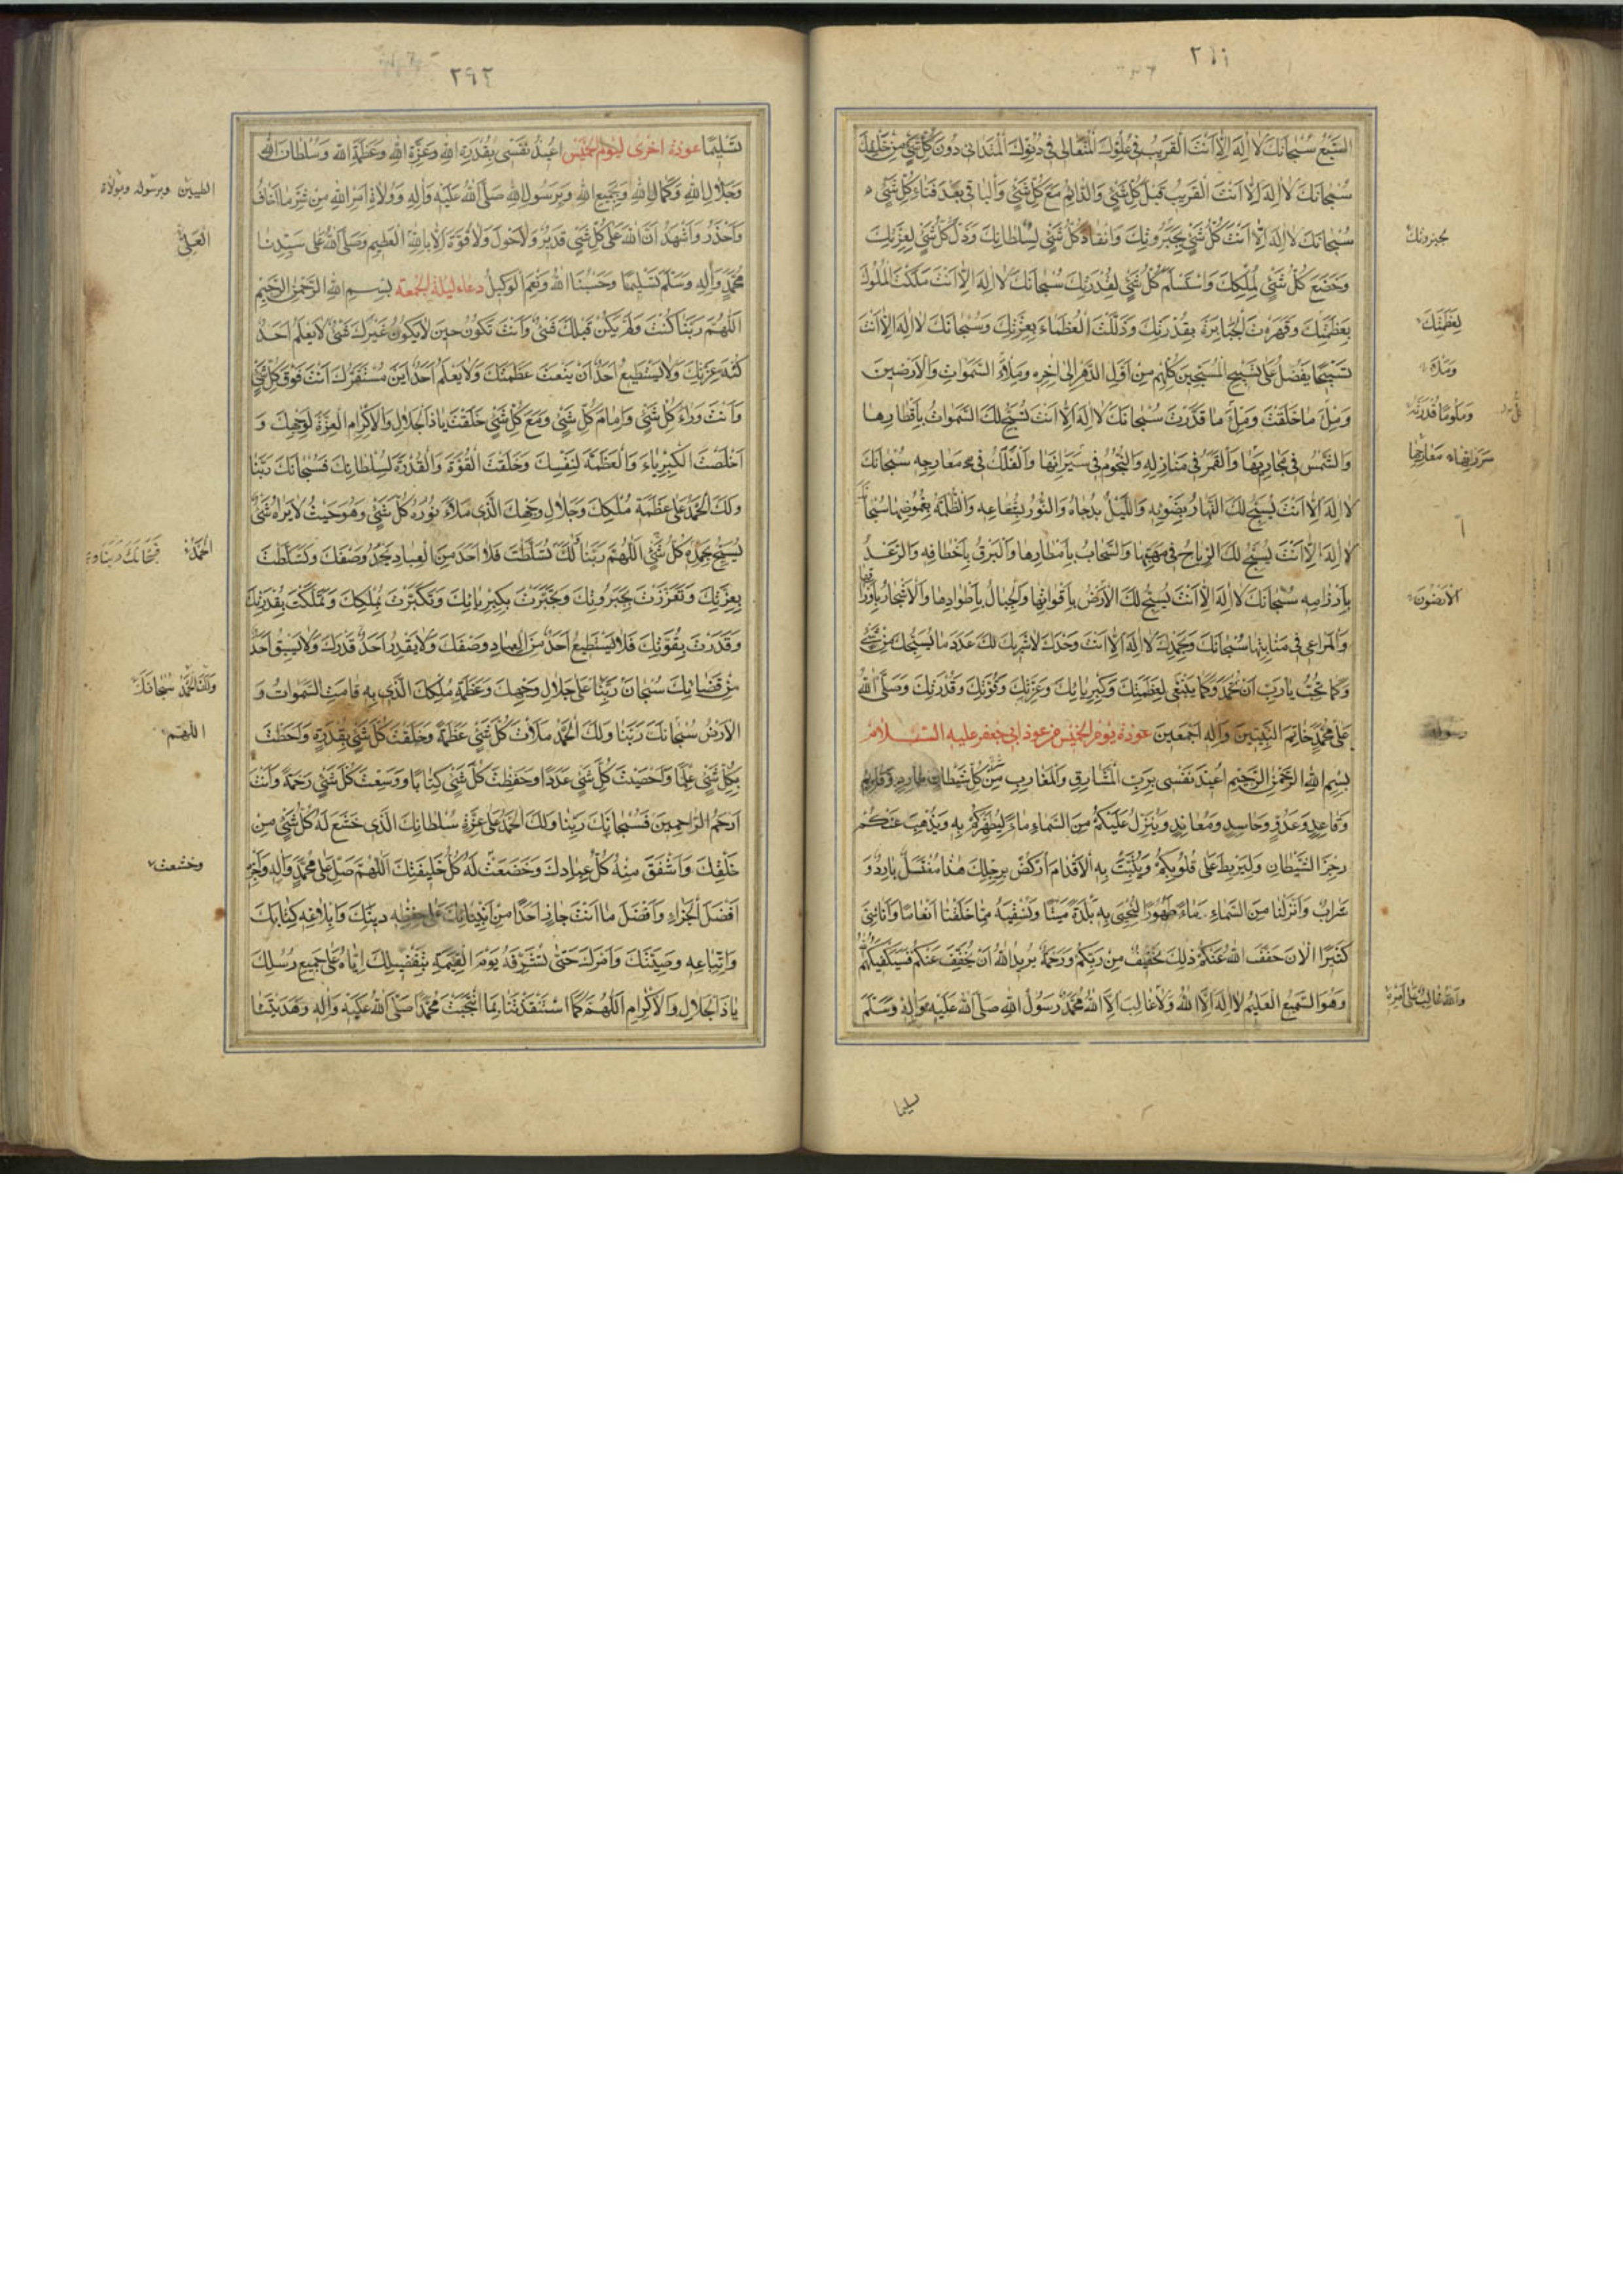 السَّبْعِ سُبْحانَكَ لا اِلهَ اِلّا اَنْتَ الْقَريبُ فى عُلُوِّكَ الْمُتَعالى فى دُنُوِّكَ الْمُتَدانى دُونَ كُلِّ شَيْءٍ مِنْ خَلْقِكَ
سُبْحانَكَ لا اِلهَ اِلّا اَنْتَ الْقَريبُ قَبْلَ كُلِّ شَيْءٍ وَالدّائِمُ مَعَ كُلِّ شَيْءٍ وَالْباقى بَعْدَ فَناءِ كُلِّ شَيْءٍ
سُبْحانَكَ لا اِلهَ اِلّا اَنْتَ كُلُّ شَيْءٍ بِجَبَرُوتِكَ وَانْقادَ كُلُّ شَيْءٍ لِسُلْطانِكَ وَذَلَّ كُلُّ شَيْءٍ لِعِزَّتِكَ
وَخَضَعَ كُلُّ شَيْءٍ لِمُلْكِكَ وَاسْتَسْلَمَ كُلُّ شَيْءٍ لِقُدْرَتِكَ سُبْحانَكَ لا اِلهَ اِلّا اَنْتَ مَلَكْتَ الْمُلُوكَ
بِعَظَمَتِكَ وَقَهَرْتَ الْجَبابِرَةَ بِقُدْرَتِكَ وَذَلَّلْتَ الْعُظَماءَ بِعِزَّتِكَ وَسُبْحانَكَ لا اِلهَ اِلّا اَنْتَ
تَسْبيحًا يَفْضُلُ عَلى تَسْبيحِ الْمُسَبِّحينَ كُلِّهِمْ مِنْ اَوَّلِ الدَّهْرِ اِلى اخِرِه وَمِلْأَ السَّمواتِ وَالْاَرَضينَ
وَمِلْءَ ما خَلَقْتَ وَمِلْءَ ما قَدَّرْتَ سُبْحانَكَ لا اِلهَ اِلّا اَنْتَ تُسَبِّحُ لَكَ السَّمواتُ بِاَقْطارِها
وَالشَّمْسُ فى مَجاريها وَالْقَمَرُ فى مَنازِلِه وَالنُّجُومُ فى سَيَرانِها وَالْفَلَكُ فى مَعارِجِه سُبْحانَكَ
لا اِلهَ اِلّا اَنْتَ يُسَبِّحُ لَكَ النَّهارُ بِضَوْئِه وَاللَّيْلُ بِدُجاهُ وَالنُّورُ بِشُعاعِه وَالظُّلْمَةُ بِغُمُوضِها سُبْحانَكَ
لا اِلهَ اِلّا اَنْتَ يُسَبِّحُ لَكَ الرِّياحُ فى مَهَبِّها وَالسَّحابُ بِاَمْطارِها وَالْبَرْقُ بِاَخْطافِه وَالرَّعْدُ
بِاَرْزامِه سُبْحانَكَ لا اِلهَ اِلّا اَنْتَ يُسَبِّحُ لَكَ الْاَرْضُ بِاَقْواتِها وَالْجِبالُ بِاَطْوادِها وَالْاَشْجارُ بِاَوْراقِها
وَالْمَراعى فى مَنابِتِها سُبْحانَكَ وَبِحَمْدِكَ لا اِلهَ اِلّا اَنْتَ وَحْدَكَ لا شَريكَ لَكَ عَدَدَ ما يُسَبِّحُكَ مِنْ شَيْءٍ
وَكَما تُحِبُّ يا رَبِّ اَنْ تُحْمَدَ وَكَما يَنْبَغى لِعَظَمَتِكَ وَكِبْرِيائِكَ وَعِزَّتِكَ وَقُوَّتِكَ وَقُدْرَتِكَ وَصَلَّى اللهُ
عَلى مُحَمَّدٍ خاتَمِ النَّبِيّينَ وَالِه اَجْمَعينَ عوذة يوم الخميس من عوذ ابى جعفر عليه السلام
بِسْمِ اللهِ الرَّحْمنِ الرَّحيمِ اُعيذُ نَفْسى بِرَبِّ الْمَشارِقِ وَالْمَغارِبِ مِنْ كُلِّ شَيْطانٍ مارِدٍ وَقائِمٍ
وَقاعِدٍ وَعَدُوٍّ وَحاسِدٍ وَمُعانِدٍ وَيُنَزِّلُ عَلَيْكُمْ مِنَ السَّماءِ ماءً لِيُطَهِّرَكُمْ بِه وَيُذْهِبَ عَنْكُمْ
رِجْزَ الشَّيْطانِ وَلِيَرْبِطَ عَلى قُلُوبِكُمْ وَيُثَبِّتَ بِهِ الْاَقْدامَ اُرْكُضْ بِرِجْلِكَ هذا مُغْتَسَلٌ بارِدٌ وَ
شَرابٌ وَاَنْزَلْنا مِنَ السَّماءِ ماءً طَهُورًا لِنُحْيِىَ بِه بَلْدَةً مَيْتًا وَنُسْقِيَهُ مِمّا خَلَقْنا اَنْعامًا وَاَناسِىَّ
كَثيرًا الْانَ خَفَّفَ اللهُ عَنْكُمْ ذلِكَ تَخْفيفٌ مِنْ رَبِّكُمْ وَرَحْمَةٌ يُريدُ اللهُ اَنْ يُخَفِّفَ عَنْكُمْ فَسَيَكْفيكَهُمُ اللهُ
وَهُوَ السَّميعُ الْعَليمُ لا اِلهَ اِلَّا اللهُ وَلا غالِبَ اِلَّا اللهُ مُحَمَّدٌ رَسُولُ اللهِ صَلَّى اللهُ عَلَيْهِ وَالِه وَسَلَّمَ
بجبروتك
لِعَظَمَتِكَ
وَمِلْأَهُ
الْاَرَضُونَ
رسوله
وَاللهُ غالِبٌ عَلى اَمْرِه
تسليما
٢٩٢
تَسْليمًا عوذة اخرى ليوم الخميس اُعيذُ نَفْسى بِقُدْرَةِ اللهِ وَعِزَّةِ اللهِ وَعَظَمَةِ اللهِ وَسُلْطانِ اللهِ
وَجَلالِ اللهِ وَكَمالِ اللهِ وَبِجَميعِ اللهِ وَبِرَسُولِ اللهِ صَلَّى اللهُ عَلَيْهِ وَالِه وَوُلاةِ اَمْرِ اللهِ مِنْ شَرِّ ما اَخافُ
وَاَحْذَرُ وَاَشْهَدُ اَنَّ اللهَ عَلى كُلِّ شَيْءٍ قَديرٌ وَلا حَوْلَ وَلا قُوَّةَ اِلّا بِاللهِ الْعَظيمِ وَصَلَّى اللهُ عَلى سَيِّدِنا
مُحَمَّدٍ وَالِه وَسَلَّمَ تَسْليمًا وَحَسْبُنَا اللهُ وَنِعْمَ الْوَكيلُ دعاء ليلة الجمعة بِسْمِ اللهِ الرَّحْمنِ الرَّحيمِ
اَللّهُمَّ رَبَّنا كُنْتَ وَلَمْ يَكُنْ قَبْلَكَ شَيْءٌ وَاَنْتَ تَكُونُ حينَ لا يَكُونُ غَيْرَكَ شَيْءٌ لا يَعْلَمُ اَحَدٌ
كُنْهَ عِزَّتِكَ وَلا يَسْتَطيعُ اَحَدٌ اَنْ يَنْعَتَ عَظَمَتَكَ وَلا يَعْلَمُ اَحَدٌ اَيْنَ مُسْتَقَرُّكَ اَنْتَ فَوْقَ كُلِّ شَيْءٍ
وَاَنْتَ وَراءَ كُلِّ شَيْءٍ وَاَمامَ كُلِّ شَيْءٍ وَمَعَ كُلِّ شَيْءٍ خَلَقْتَ يا ذَا الْجَلالِ وَالْاِكْرامِ الْعِزَّةَ لِوَجْهِكَ وَ
اَخْلَصْتَ الْكِبْرِياءَ وَالْعَظَمَةَ لِنَفْسِكَ وَخَلَقْتَ الْقُوَّةَ وَالْقُدْرَةَ لِسُلْطانِكَ فَسُبْحانَكَ رَبَّنا
وَلَكَ الْحَمْدُ عَلى عَظَمَةِ مُلْكِكَ وَجَلالِ وَجْهِكَ الَّذى مَلَأَ نُورُهُ كُلَّ شَيْءٍ وَهُوَ حَيْثُ لا يَراهُ شَيْءٌ
يُسَبِّحُ بِحَمْدِه كُلُّ شَيْءٍ اَللّهُمَّ رَبَّنا لَكَ تَسَلَّطْتَ فَلا اَحَدَ مِنَ الْعِبادِ يَحُدُّ وَصْفَكَ وَتَسَلَّطْتَ
بِعِزَّتِكَ وَتَعَزَّزْتَ بِجَبَرُوتِكَ وَتَجَبَّرْتَ بِكِبْرِيائِكَ وَتَكَبَّرْتَ بِمُلْكِكَ وَتَمَلَّكْتَ بِقُدْرَتِكَ
وَقَدَرْتَ بِقُوَّتِكَ فَلا يَسْتَطيعُ اَحَدٌ مِنَ الْعِبادِ وَصْفَكَ وَلا يَقْدِرُ اَحَدٌ قَدْرَكَ وَلا يَسْبِقُ اَحَدٌ
مِنْ قَضائِكَ سُبْحانَ رَبِّنا عَلى جَلالِ وَجْهِكَ وَعَظَمَةِ مُلْكِكَ الَّذى بِه قامَتِ السَّمواتُ وَ
الْاَرْضُ سُبْحانَكَ رَبَّنا وَلَكَ الْحَمْدُ مَلَأْتَ كُلَّ شَيْءٍ عَظَمَةً وَخَلَقْتَ كُلَّ شَيْءٍ بِقُدْرَةٍ وَاَحَطْتَ
بِكُلِّ شَيْءٍ عِلْمًا وَاَحْصَيْتَ كُلَّ شَيْءٍ عَدَدًا وَحَفِظْتَ كُلَّ شَيْءٍ كِتابًا وَوَسِعْتَ كُلَّ شَيْءٍ رَحْمَةً وَاَنْتَ
اَرْحَمُ الرّاحِمينَ فَسُبْحانَكَ رَبَّنا وَلَكَ الْحَمْدُ عَلى عِزَّةِ سُلْطانِكَ الَّذى خَشَعَ لَهُ كُلُّ شَيْءٍ مِنْ
خَلْقِكَ وَاَشْفَقَ مِنْهُ كُلُّ عِبادِكَ وَخَضَعَتْ لَهُ كُلُّ خَليقَتِكَ اَللّهُمَّ صَلِّ عَلى مُحَمَّدٍ وَالِه وَاجْزِه
اَفْضَلَ الْجَزاءِ وَاَفْضَلَ ما اَنْتَ جازٍ اَحَدًا مِنْ اَنْبِيائِكَ عَلى حِفْظِه دينَكَ وَاِبْلاغِه كِتابَكَ
وَاتِّباعِه وَصِيَّتَكَ وَاَمْرَكَ حَتّى تُشَرِّفَهُ يَوْمَ الْقِيمَةِ بِتَفْضيلِكَ اِيّاهُ عَلى جَميعِ رُسُلِكَ
يا ذَا الْجَلالِ وَالْاِكْرامِ اَللّهُمَّ كَمَا اسْتَنْقَذْتَنا بِمَا انْتَجَبْتَ مُحَمَّدًا صَلَّى اللهُ عَلَيْهِ وَالِه وَهَدَيْتَنا
الطيبين وبرسوله وبولاة
الْعَلِىِّ
الْحَمْدُ
وَلَكَ الْحَمْدُ سُبْحانَكَ
اللهم
وخشعت